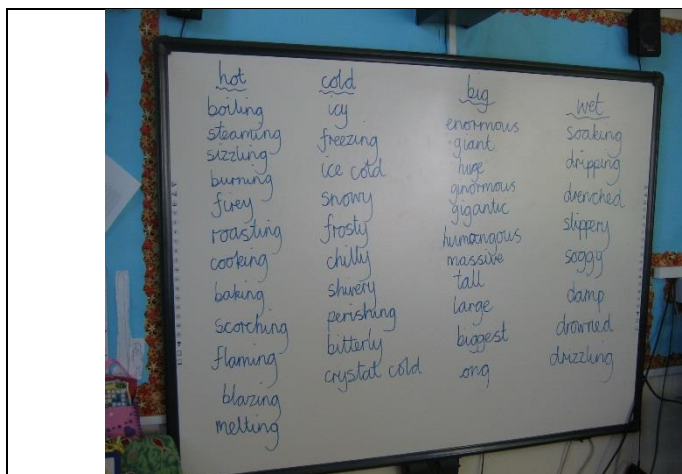 hot
boiling
steaming
sizzling
burning
firey
roasting
cooking
baking
scorching
flaming
blazing
melting
cold
icy
freezing
ice cold
snowy
frosty
chilly
shivery
perishing
bitterly
crystat cold
big
enormous
giant
huge
ginormous
gigantic
humoongous
massive
tall
large
biggest
wet
soaking
dripping
drenched
slippery
soggy
damp
drowned
drizzling